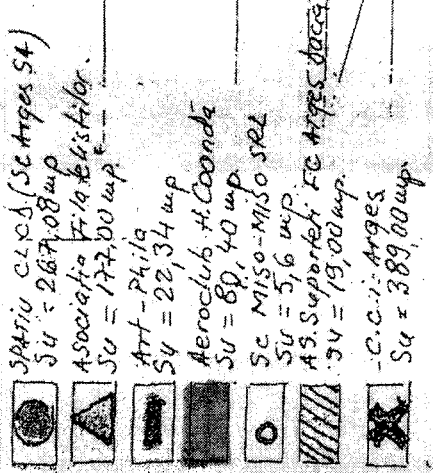 SPAȚIU CLCS (SC Argeș SA)
Su = 267,08 mp
Asociația Filateliștilor.
Su = 177,00 mp.
Art-Phila
Su = 22,34 mp
Aeroclub H. Coandă
Su = 80,40 mp
SC MISO-MISO SRL
Su = 5,6 mp.
AS. Suporteri FC Argeș Dacia
Su = 19,00 mp.
C.C.i. Argeș
Su = 389,00 mp.